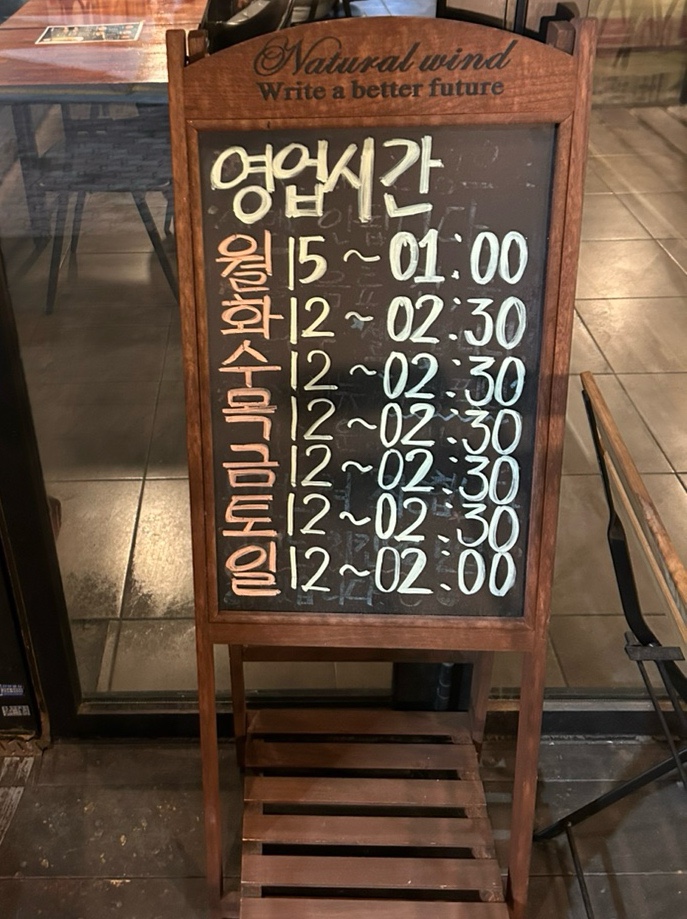 Natural wind
Write a better future
영업시간
월 15 ~ 01:00
화 12 ~ 02:30
수 12 ~ 02:30
목 12 ~ 02:30
금 12 ~ 02:30
토 12 ~ 02:30
일 12 ~ 02:00